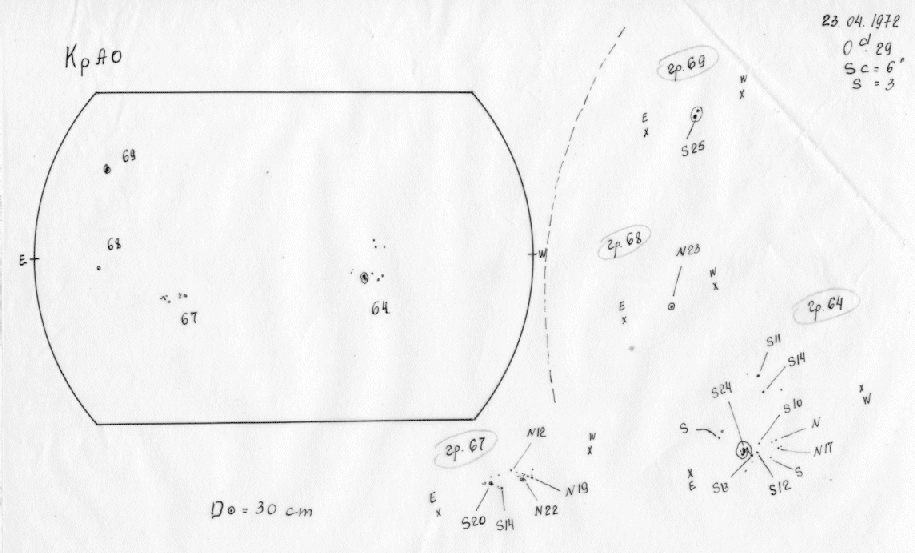 КрАО
23 04.1972
0d.29
Sc = 6"
S = 3
E
W
69
68
67
64
D⊙ = 30 cm
гр.69
E
x
W
x
S25
гр.68
N23
E
x
W
x
гр.64
S11
S14
S24
S10
S
N
N17
S
S12
S13
x
E
x
W
гр.67
N12
W
x
E
x
S20
S14
N22
N19